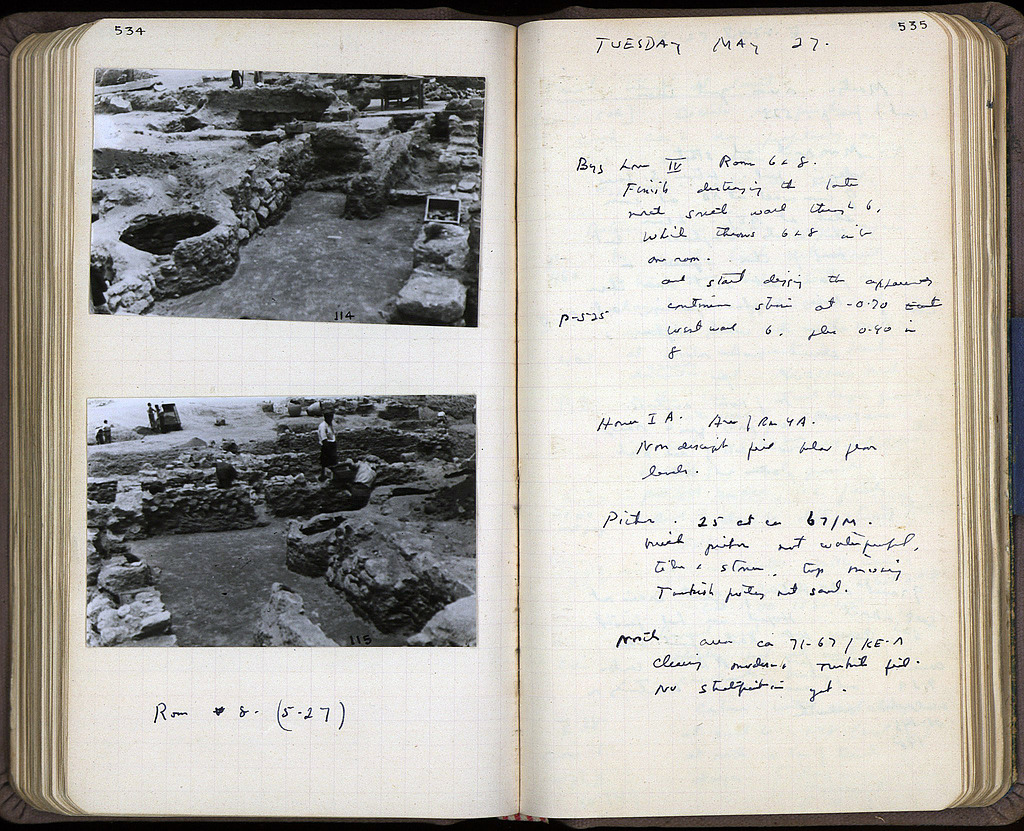 534
114
115
Room 8. (5-27)
535
TUESDAY MAY 27.
Byz House IV Room 6 & 8.
Finish destroying the late
north small wall through 6,
which throws 6 & 8 into
one room.
and start digging the apparently
continuous at -0.70
P-525
west wall 6, plus 0.40 in
8
House I A. Area / Rm 4A.
Non descript fill below floor
levels.
Pithos. 25 at ca 67/M.
pithos not waterproof,
tile & stone, top missing
Turkish pottery and sand.
North area ca 71-67 / KE-Λ
Clearing modern & Turkish fill.
No yet.